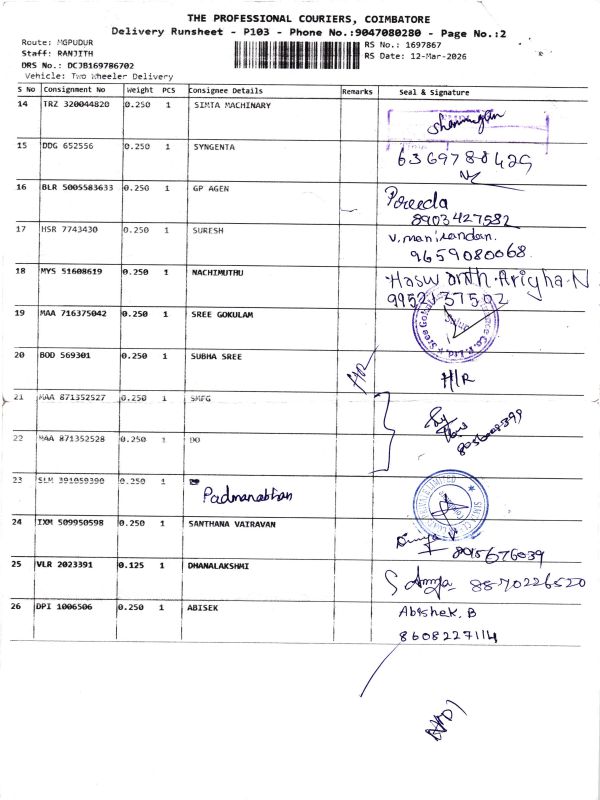 THE PROFESSIONAL COURIERS, COIMBATORE
Delivery Runsheet - P103 - Phone No.:9047080280 - Page No.:2
Route: MGPUDUR
Staff: RANJITH
DRS No.: DCJB169786702
Vehicle: Two Wheeler Delivery
RS No.: 1697867
RS Date: 12-Mar-2026
S No Consignment No Weight PCS Consignee Details Remarks Seal & Signature
14 TRZ 320044820 0.250 1 SIMTA MACHINARY
15 DDG 652556 0.250 1 SYNGENTA 6369788429
16 BLR 5005583633 0.250 1 GP AGEN
8903427582
17 HSR 7743430 0.250 1 SURESH V.manikandan.
9659080068
18 MYS 51608619 0.250 1 NACHIMUTHU Haswanth.Arigha.N
9952137592
19 MAA 716375042 0.250 1 SREE GOKULAM
20 BOD 569301 0.250 1 SUBHA SREE H/R
21 MAA 871352527 0.250 1 SMFG
22 MAA 871352528 0.250 1 DO
23 SLM 391059390 0.250 1 Padmanabhan
24 IXM 509950598 0.250 1 SANTHANA VAIRAVAN 8015676039
25 VLR 2023391 0.125 1 DHANALAKSHMI 8870226520
26 DPI 1006506 0.250 1 ABISEK Abishek. B
8608227114